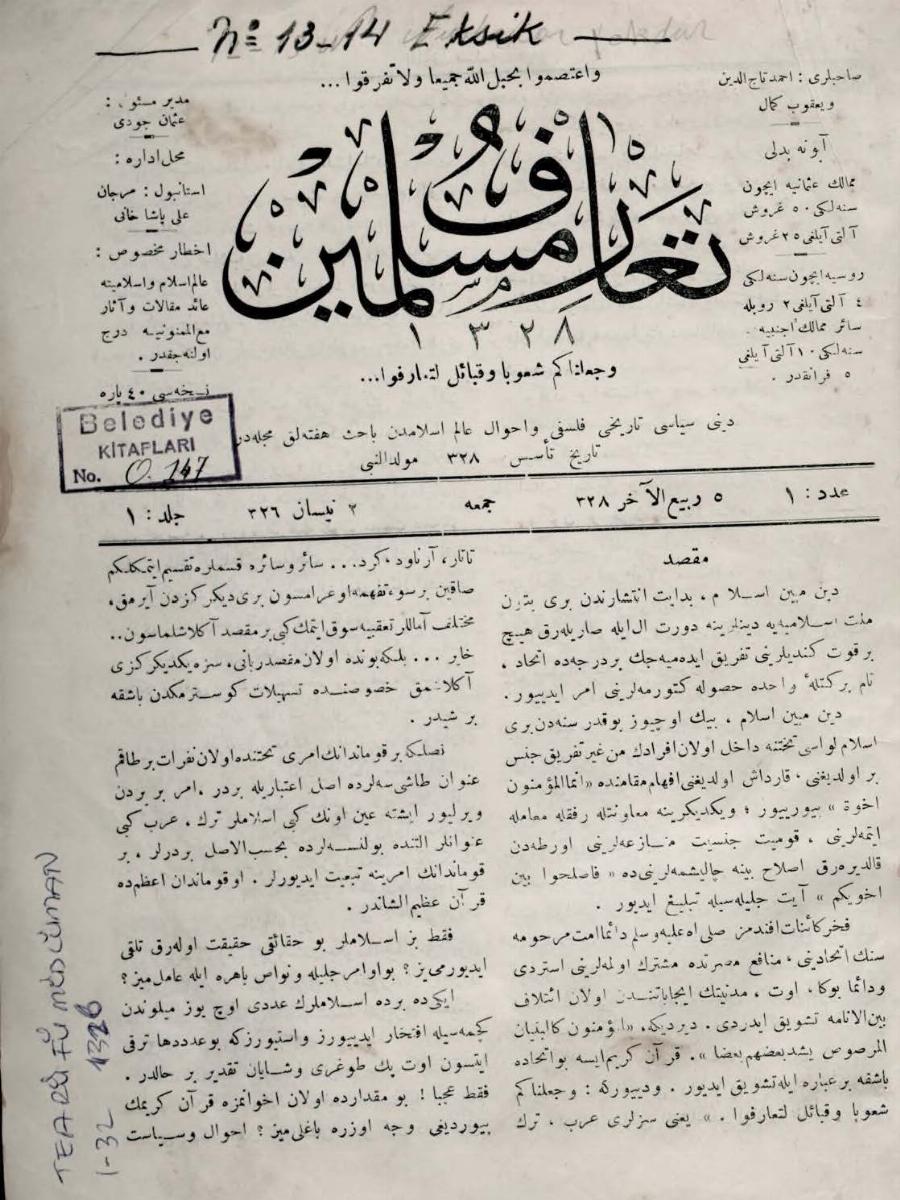 № 13-14 Eksik
واعتصموا بحبل الله جميعا ولا تفرقوا...
صاحبلری : احمد تاج الدین
و یعقوب کمال
آبونه بدلی
ممالك عثمانیه ایچون
سنه‌لكی ٥٠ غروش
آلتی آیلغی ٢٥ غروش
روسیه ایچون سنه‌لكی
٤ آلتی آیلغی ٢ روبله
سائر ممالك اجنبیه
سنه‌لكی ١٠ آلتی آیلغی
٥ فرانقدر .
تعارف مسلمین
١٣٢٨
وجعلناكم شعوبا وقبائل لتعارفوا...
مدیر مسئول :
عثمان جودی
محل اداره :
استانبول : مرجان
علی پاشا خانی
اخطار مخصوص :
عالم اسلام و اسلامیته
عائد مقالات و آثار
مع الممنونیه درج
اولنه‌جقدر .
نسخه‌سی ٤٠ پاره
Belediye
KİTAPLARI
No. O. 147
دینی سیاسی تاریخی فلسفی واحوال عالم اسلامدن باحث هفته‌لق مجله‌در
تاریخ تأسیس ٣٢٨ مولد النبی
عدد : ١
٥ ربیع الآخر ٣٢٨
جمعه
٢ نیسان ٣٢٦
جلد : ١
مقصد
دین مبین اسلام ، بدایت انتشارندن بری بتون
ملت اسلامیه‌یه دینلرینه دورت ال ایله صاریله‌رق هیچ
بر قوت کندیلرینی تفریق ایده‌میه‌جك بر درجه‌ده اتحاد ،
تام بر کتلهٔ واحده حصوله کتورمه‌لرینی امر ایدییور .
دین مبین اسلام ، بیك اوچیوز بوقدر سنه‌دن بری
اسلام لواسی تحتنه داخل اولان افرادك من غیر تفریق جنس
بر اولدیغنی ، قارداش اولدیغنی افهام مقامنده «انما المؤمنون
اخوة » بیورییور ؛ ویکدیکرینه معاونتله رفقله معامله
ایتمه‌لرینی ، قومیت جنسیت منازعه‌لرینی اورطه‌دن
قالدیره‌رق اصلاح بینه چالیشمه‌لرینی‌ده « فاصلحوا بین
اخویكم » آیت جلیله‌سیله تبلیغ ایدیور .
فخر کائنات افندمز صلی الله علیه وسلم دائما امت مرحومه
سنك اتحادینی ، منافع مصرتده مشترك اولمه‌لرینی استردی
ودائما بوكا ، اوت ، مدنیتك ایجاباتندن اولان ائتلاف
بین الانامه تشویق ایدردی . دیردیكه، «المؤمنون كالبنیان
المرصوص یشد بعضهم بعضا ». قرآن كریم ایسه بو اتحاده
باشقه بر عباره ایله تشویق ایدیور . ودییورکه : وجعلناكم
شعوبا وقبائل لتعارفوا . » یعنی سزلری عرب ، ترك
تاتار ، آرناود ، کرد... سائر و سائره قسملره تقسیم ایتمكلكم
صاقین بر سوء تفهمه اوغرامسون بری دیكركزدن آیرمق ،
مختلف آماللر تعقیبه سوق ایتمك كبی بر مقصد آكلاشلماسون..
خایر ... بلكه بونده اولان مقصد ربانی ، سزه یكدیكركزی
آكلاتمق خصوصنده تسهیلات كوسترمكدن باشقه
بر شیدر .
نصلكه بر قوماندانك امری تحتنده اولان نفرات بر طاقم
عنوان طاشی‌سه‌لرده اصل اعتباریله بردر ، امر بر بردن
ویرلیور ایشته عین اونك كبی اسلاملر ترك ، عرب كبی
عنوانلر التنده بولنسه‌لرده بحسب الاصل بردرلر ، بر
قوماندانك امرینه تبعیت ایدیورلر . او قوماندان اعظم‌ده
قرآن عظیم الشاندر .
فقط بز اسلاملر بو حقائقی حقیقت اوله‌رق تلقی
ایدیورمی‌یز ؟ بو اوامر جلیله و نواص باهره ایله عامل‌میز ؟
ایكی‌ده برده اسلاملرك عددی اوچ یوز میلوندن
كچمه‌سیله افتخار ایدییورز واستیورزكه بو عددها ترقی
ایتسون اوت پك طوغری وشایان تقدیر بر حالدر .
فقط عجبا ! بو مقدارده اولان اخوانمزه قرآن كریمك
بیوردیغی وجه اوزره باغلی‌میز ؟ احوال وسیاست
TEARÜFÜ MÜSLÜMAN
1328
1-32